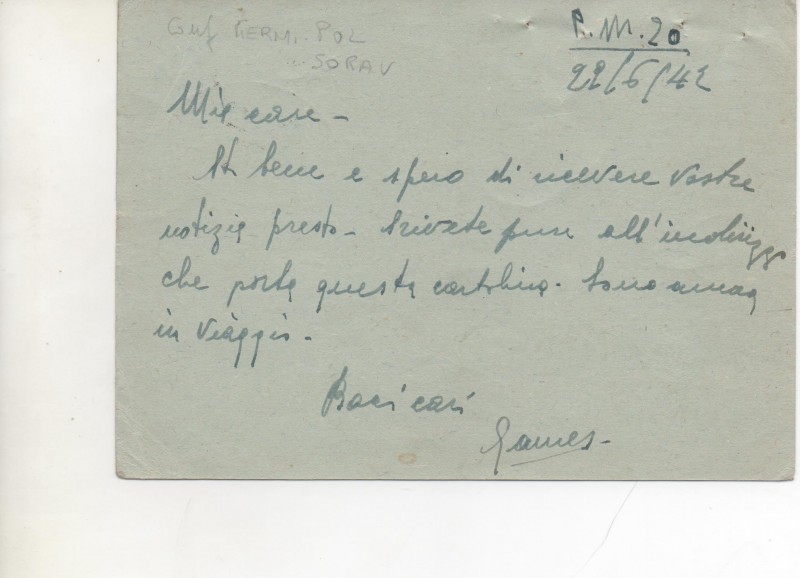 GERM. POL
SORAU
P. M. 20
22/6/42
Mie care -
Sto bene e spero di ricevere vostre
notizie presto - Scrivete pure all'indirizzo
che porta questa cartolina. Sono ancora
in viaggio -
Baci cari